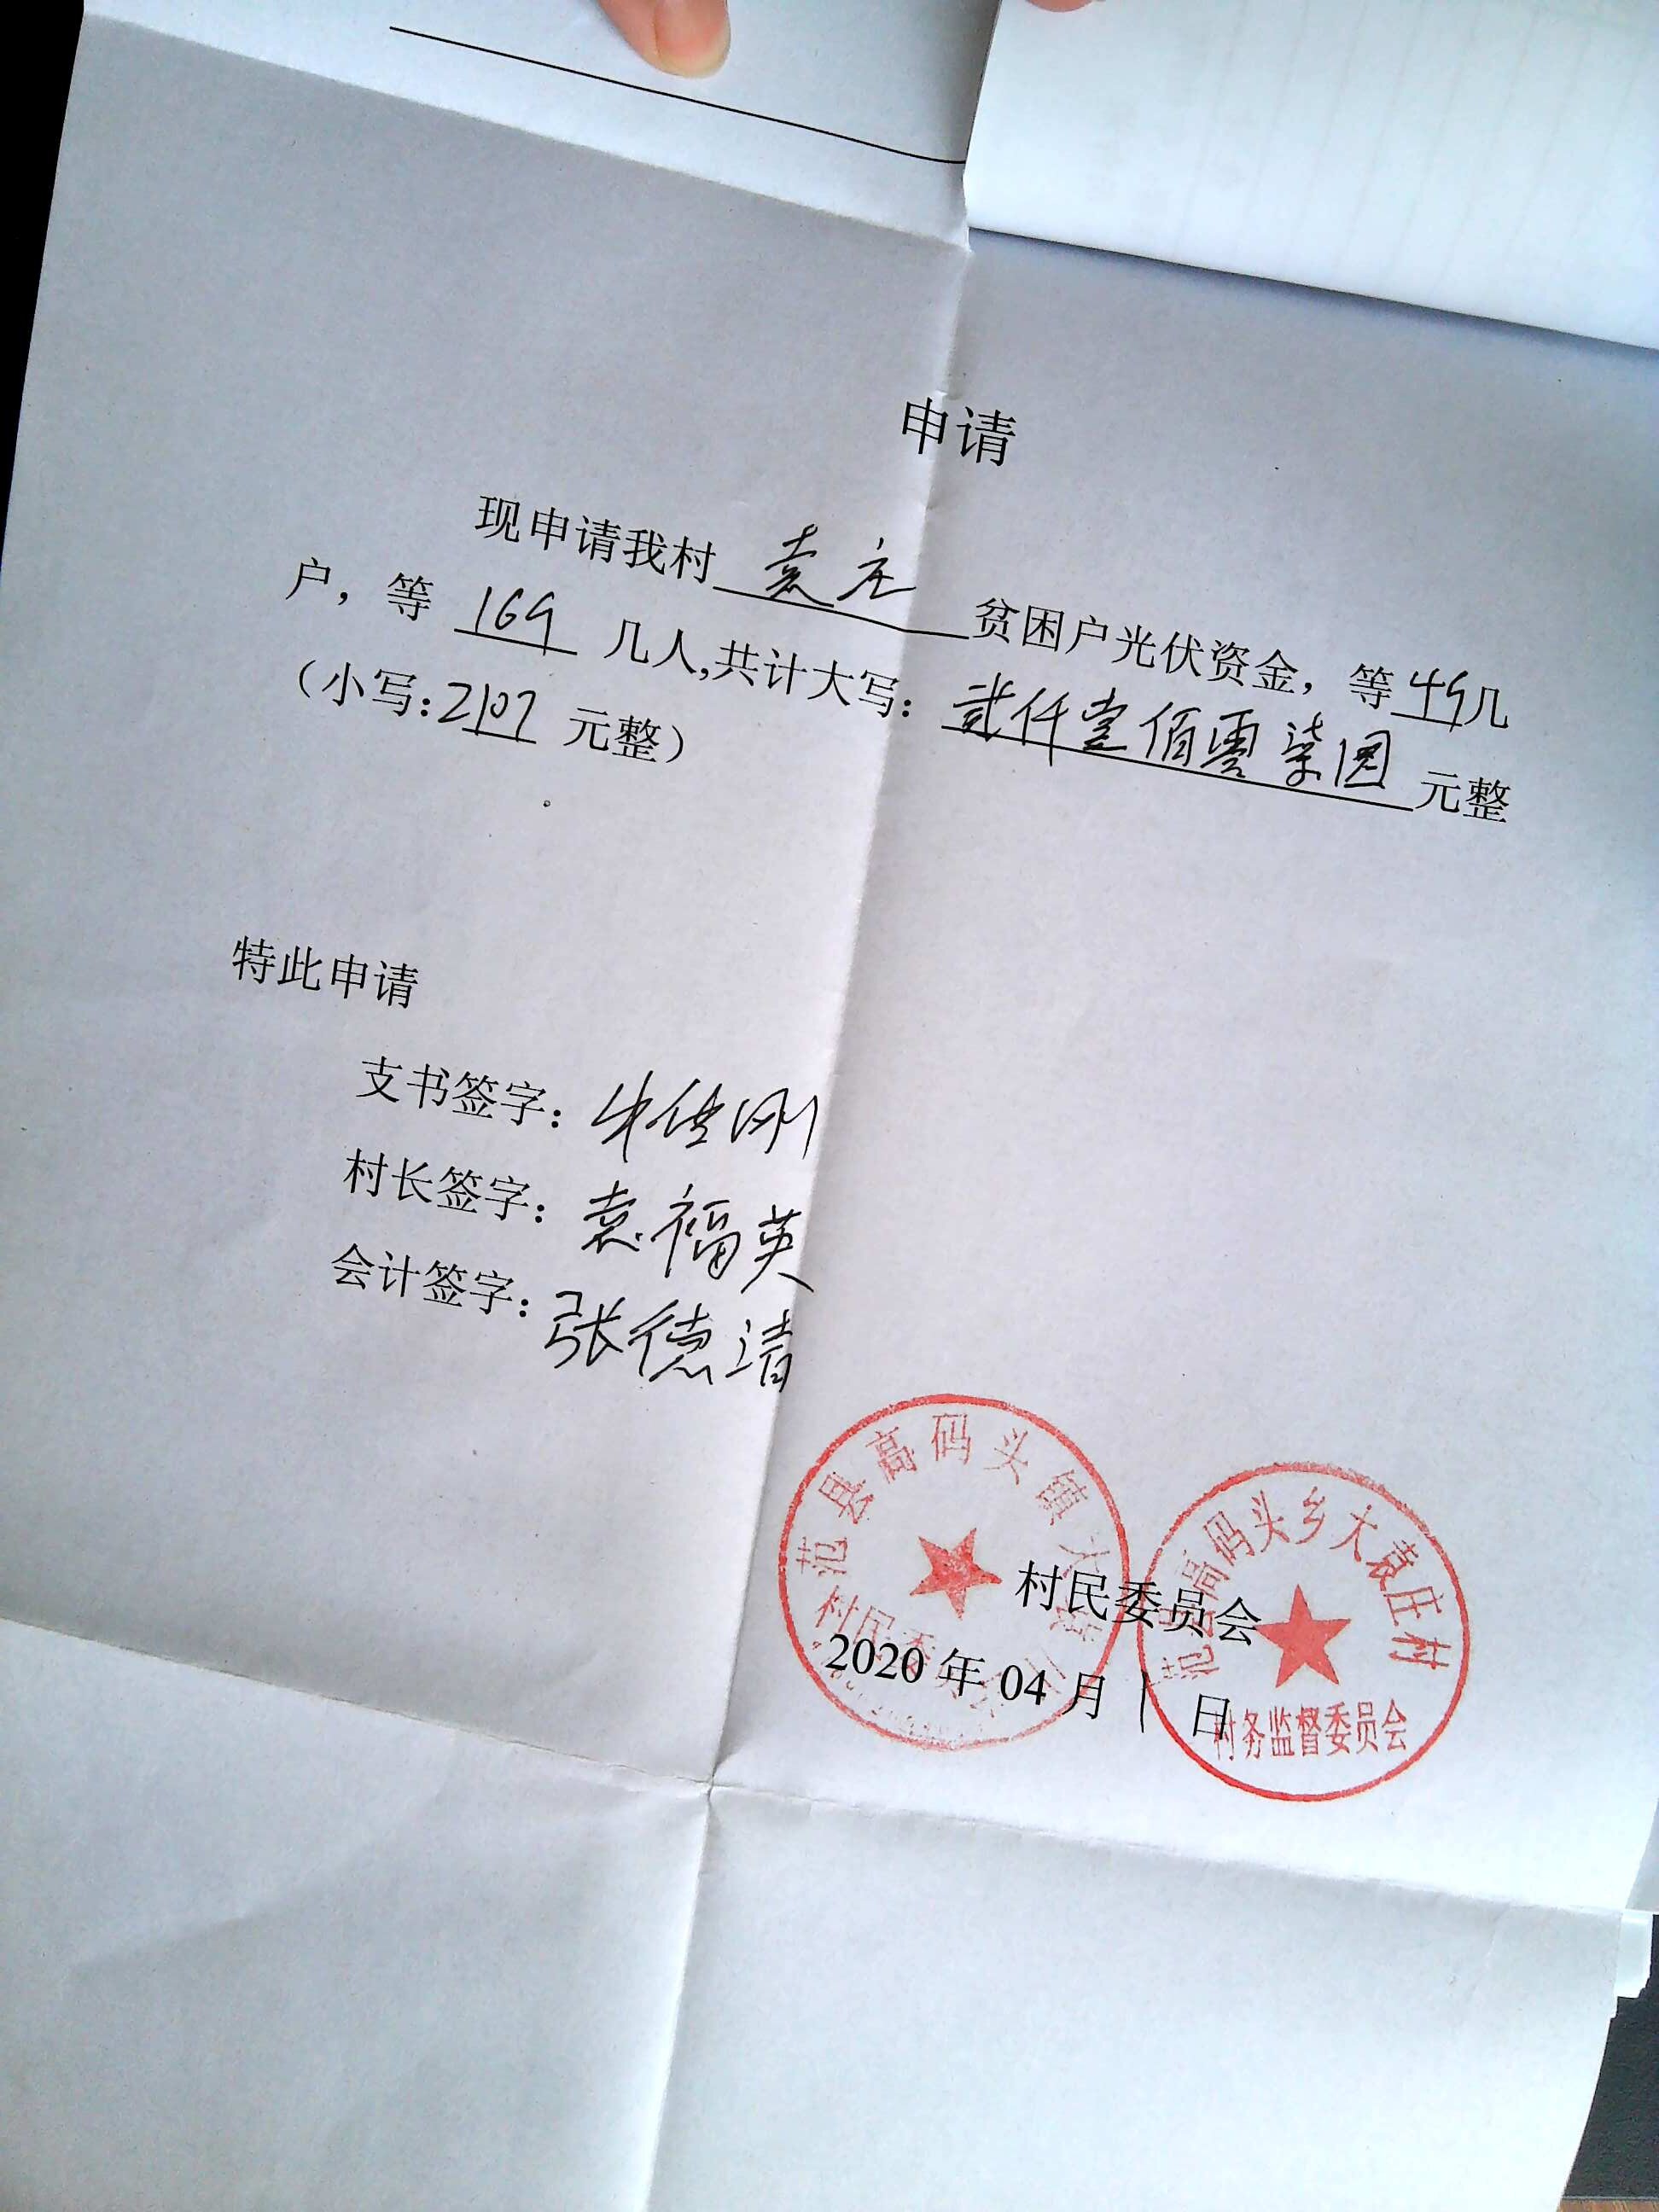 申请
现申请我村 袁庄 贫困户光伏资金，等49几
户，等 169 几人,共计大写：贰仟壹佰零柒圆元整
（小写:2107 元整）
特此申请
支书签字：
村长签字：袁福英
会计签字：张德清
范县高码头镇大袁庄
村民委员会
村民委员会
2020年04月1日
范县高码头乡大袁庄村
村务监督委员会